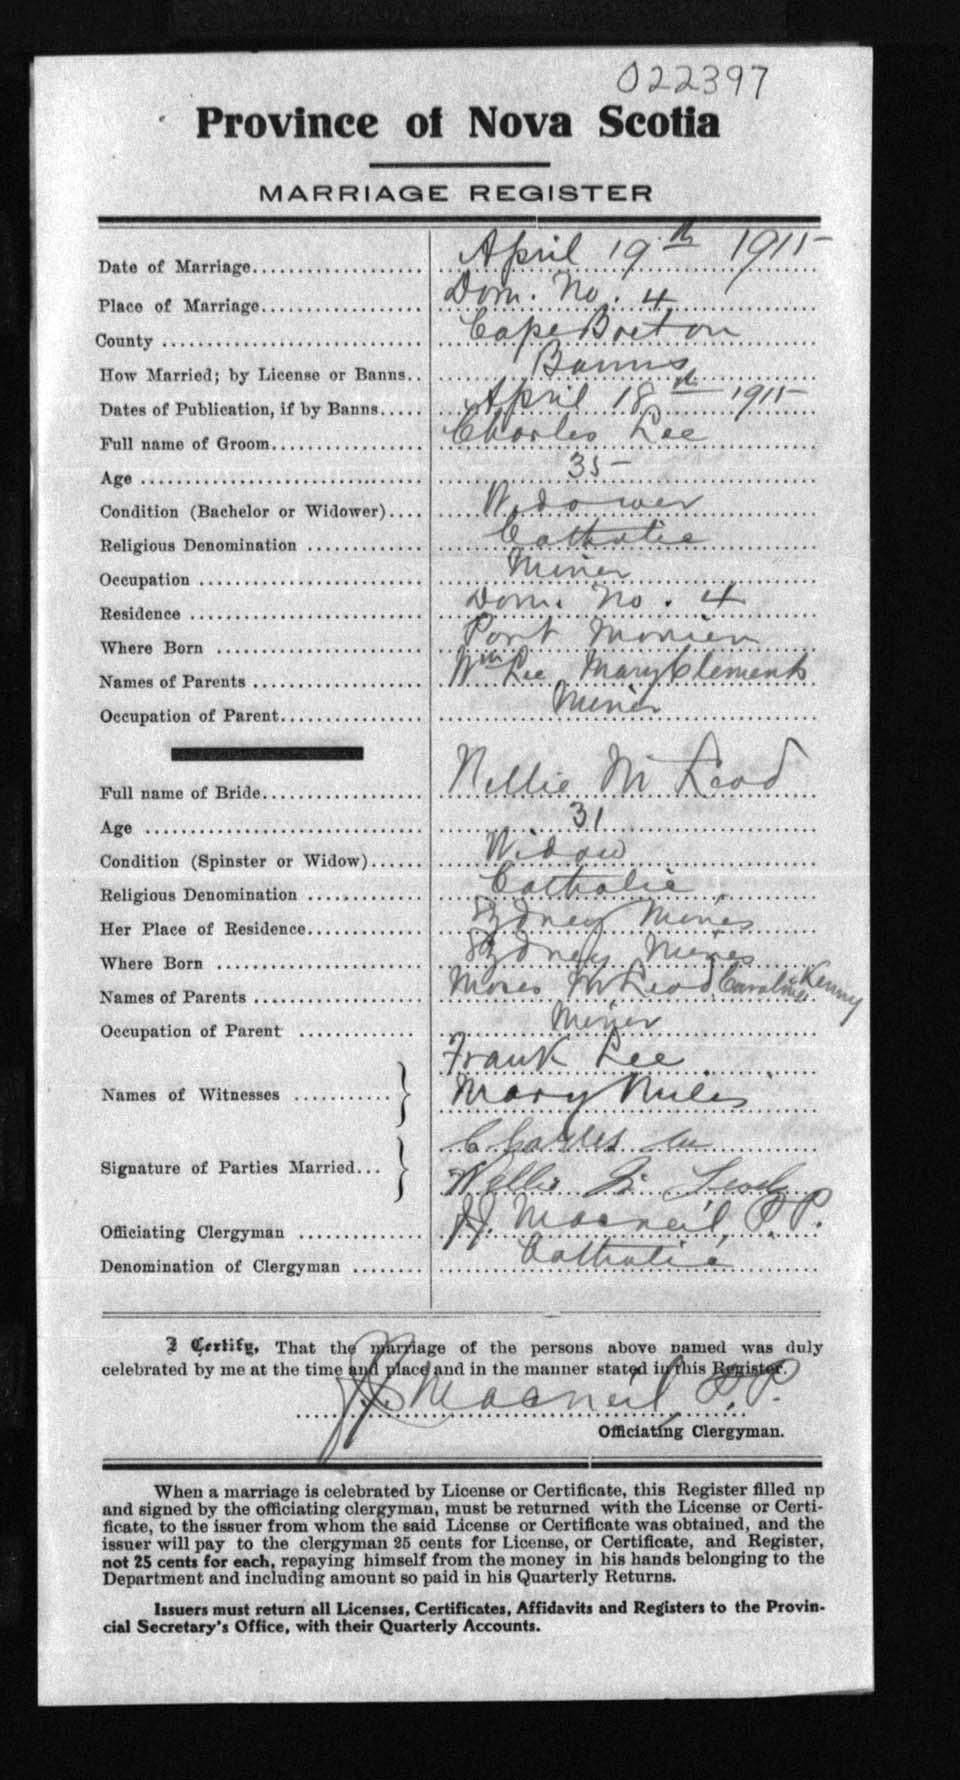 022397
Province of Nova Scotia
MARRIAGE REGISTER
Date of Marriage April 19th 1915
Place of Marriage Dom. No. 4
County Cape Breton
How Married; by License or Banns Banns
Dates of Publication, if by Banns April 18th 1915
Full name of Groom Charles Lee
Age 35
Condition (Bachelor or Widower) Widower
Religious Denomination Catholic
Occupation Miner
Residence Dom. No. 4
Where Born Port Morien
Names of Parents Wm Lee Mary Clements
Occupation of Parent Miner
Full name of Bride Nellie McLeod
Age 31
Condition (Spinster or Widow) Widow
Religious Denomination Catholic
Her Place of Residence Sydney Mines
Where Born Sydney Mines
Names of Parents Moses McLeod, Caroline McKenny
Occupation of Parent Miner
Frank Lee
Names of Witnesses Mary
Charles Lee
Signature of Parties Married Nellie
Officiating Clergyman J.J. Macneil, P.P.
Denomination of Clergyman Catholic
I Certify, That the marriage of the persons above named was duly
celebrated by me at the time and place and in the manner stated in this Register.
JJ Macneil P.P.
Officiating Clergyman.
When a marriage is celebrated by License or Certificate, this Register filled up
and signed by the officiating clergyman, must be returned with the License or Certi-
ficate, to the issuer from whom the said License or Certificate was obtained, and the
issuer will pay to the clergyman 25 cents for License, or Certificate, and Register,
not 25 cents for each, repaying himself from the money in his hands belonging to the
Department and including amount so paid in his Quarterly Returns.
Issuers must return all Licenses, Certificates, Affidavits and Registers to the Provin-
cial Secretary's Office, with their Quarterly Accounts.